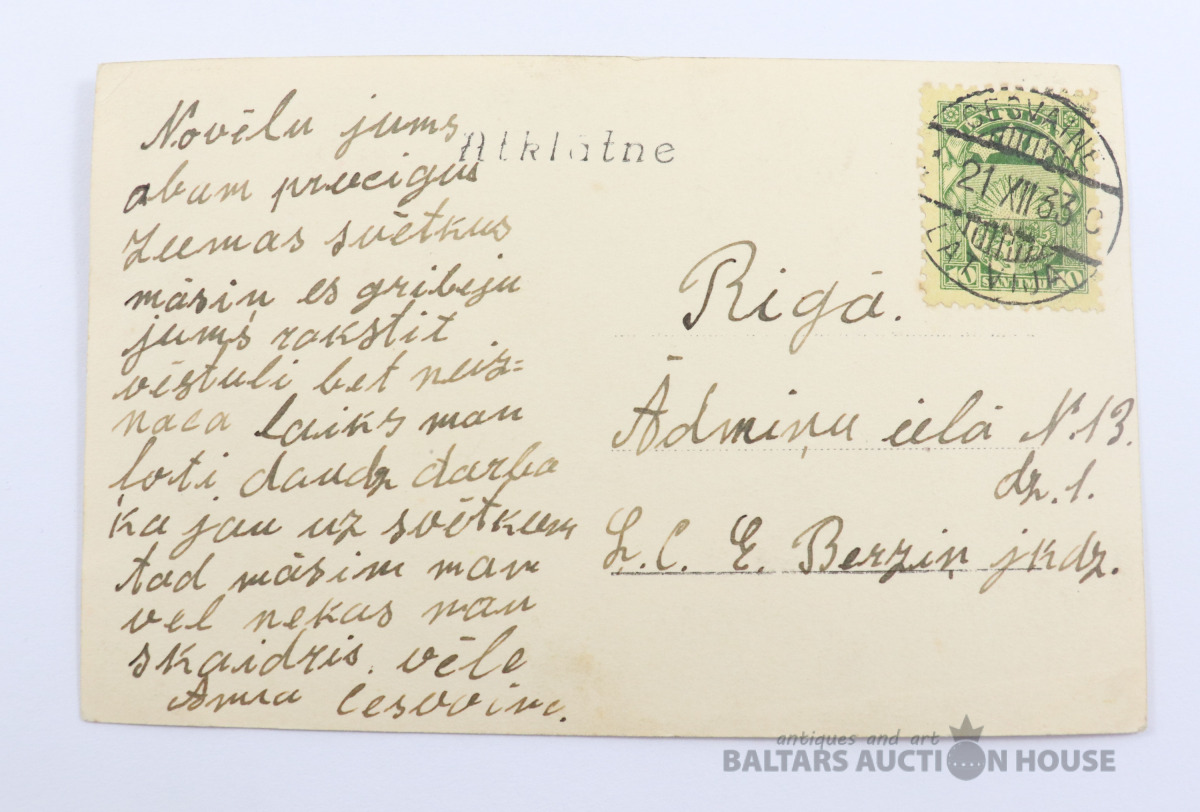 Novēlu jums
abam precigus
Zeemas svētkus
māsiņ es gribeju
jums rakstit
vēstuli bet neiz=
naca laiks man
ļoti daudz darba
ka jau uz svētkem
tad māsiņ man
vel nekas nau
skaidris. vēle
Anna Cesvainē.
Atklātne
LATVIJA
CESVAINE
21 XII 33 C
LATVIJA
Rigā.
Ādmiņu ielā N.13.
dz. 1.
L. C. E. Berziņ jkdz.
antiques and art
BALTARS AUCTION HOUSE